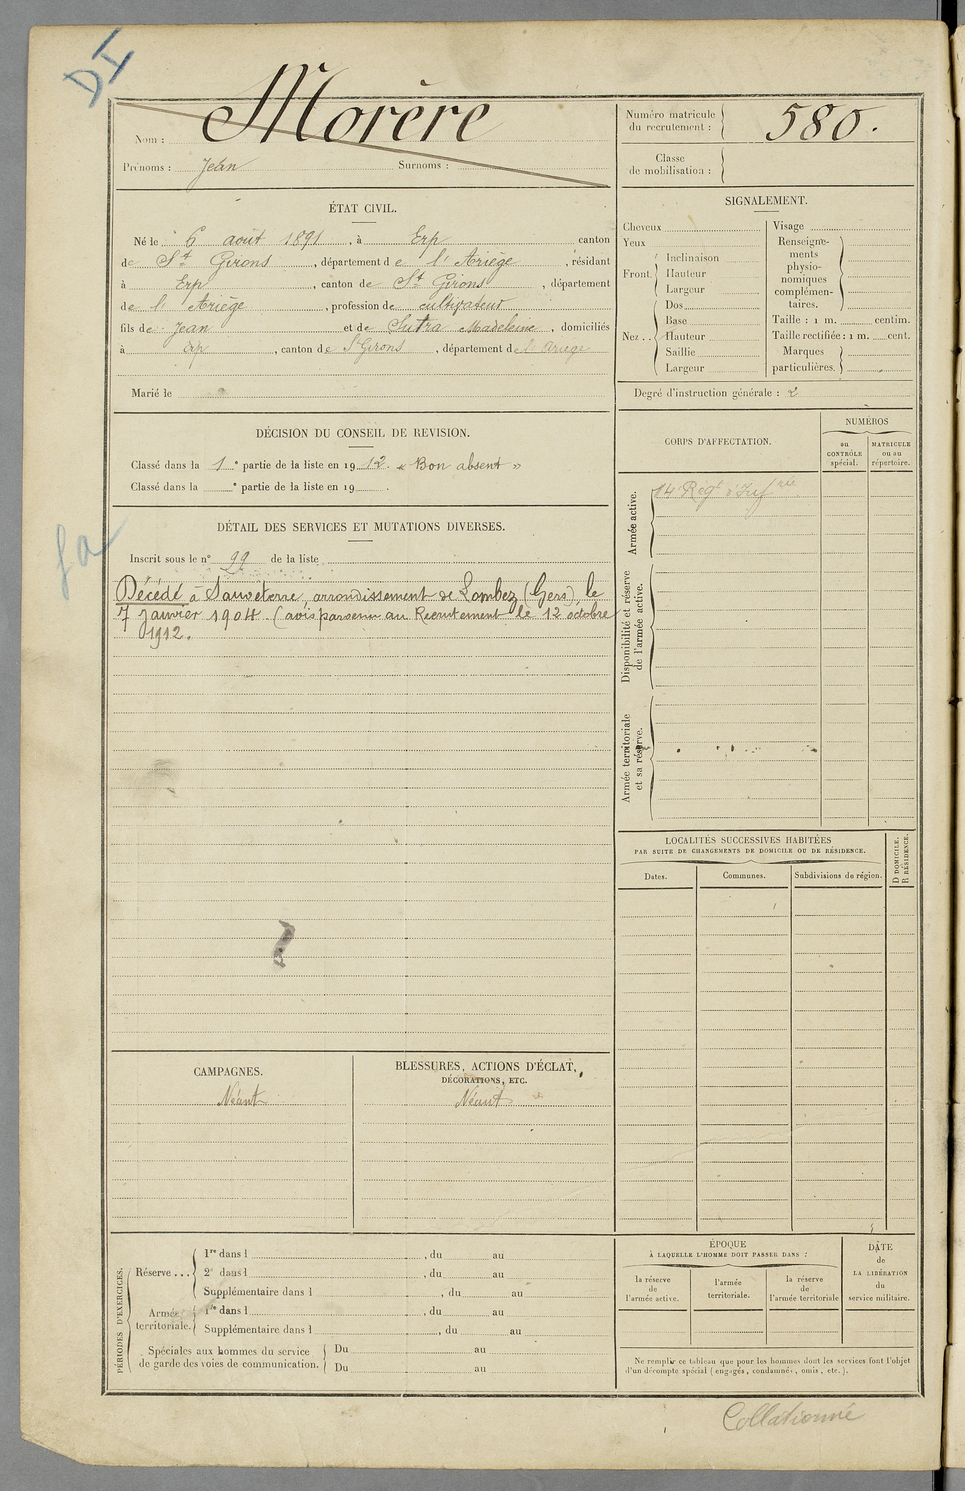 DI
Nom : Morère
Prénoms : Jean Surnoms :
Numéro matricule du recrutement : 580.
Classe de mobilisation :
ÉTAT CIVIL.
Né le 6 août 1891, à Erp canton
de St Girons, département de l'Ariège, résidant
à Erp, canton de St Girons, département
de l'Ariège, profession de cultivateur
fils de Jean et de Sutra Madeleine, domiciliés
à Erp, canton de St Girons, département de l'Ariège
Marié le
SIGNALEMENT.
Cheveux
Yeux
Front
Inclinaison
Hauteur
Largeur
Nez ..
Dos
Base
Hauteur
Saillie
Largeur
Visage
Renseigne-
ments
physio-
nomiques
complémen-
taires.
Taille : 1 m. centim.
Taille rectifiée : 1 m. cent.
Marques
particulières.
Degré d'instruction générale : 2
DÉCISION DU CONSEIL DE REVISION.
Classé dans la 1e partie de la liste en 1912. « Bon absent »
Classé dans la e partie de la liste en 19 .
CORPS D'AFFECTATION.
NUMÉROS
au
CONTRÔLE
spécial.
MATRICULE
ou au
répertoire.
Armée active.
14e Regt d'Infrie
Disponibilité et réserve
de l'armée active.
Armée territoriale
et sa réserve.
DÉTAIL DES SERVICES ET MUTATIONS DIVERSES.
Inscrit sous le n° 99 de la liste
Décédé à Sauveterre, arrondissement de Lombez (Gers), le
7 Janvier 1904. (avis parvenu au Recrutement le 12 octobre
1912.
LOCALITÉS SUCCESSIVES HABITÉES
PAR SUITE DE CHANGEMENTS DE DOMICILE OU DE RÉSIDENCE.
Dates.
Communes.
Subdivisions de région.
D DOMICILE.
R RÉSIDENCE.
CAMPAGNES.
Néant
BLESSURES, ACTIONS D'ÉCLAT,
DÉCORATIONS, ETC.
Néant
PÉRIODES D'EXERCICES.
Réserve ...
1re dans l , du au
2e dans l , du au
Supplémentaire dans l , du au
Armée
territoriale.
1re dans l , du au
Supplémentaire dans l , du au
Spéciales aux hommes du service
de garde des voies de communication.
Du au
Du au
ÉPOQUE
À LAQUELLE L'HOMME DOIT PASSER DANS :
la réserve
de
l'armée active.
l'armée
territoriale.
la réserve
de
l'armée territoriale
DATE
de
LA LIBÉRATION
du
service militaire.
Ne remplir ce tableau que pour les hommes dont les services font l'objet
d'un décompte spécial (engagés, condamnés, omis, etc.).
Collationné